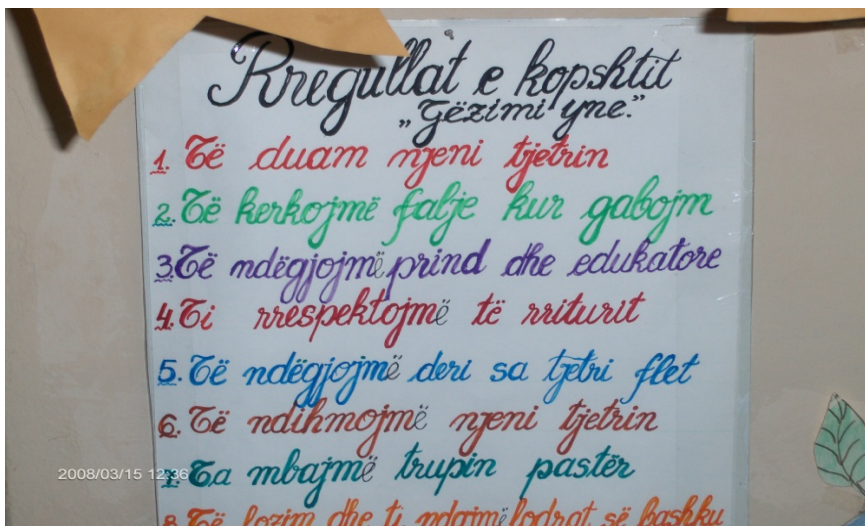 Rregullat e kopshtit
„Gëzimi yne."
1. Të duam njeni tjetrin
2. Të kerkojmë falje kur gabojm
3. Të ndëgjojmë prind dhe edukatore
4. Ti rrespektojmë të rriturit
5. Të ndëgjojmë deri sa tjetri flet
6. Të ndihmojmë njeni tjetrin
7. Ta mbajmë trupin pastër
8. Të lozim dhe ti ndajmë lodrat së bashku
2008/03/15 12:36